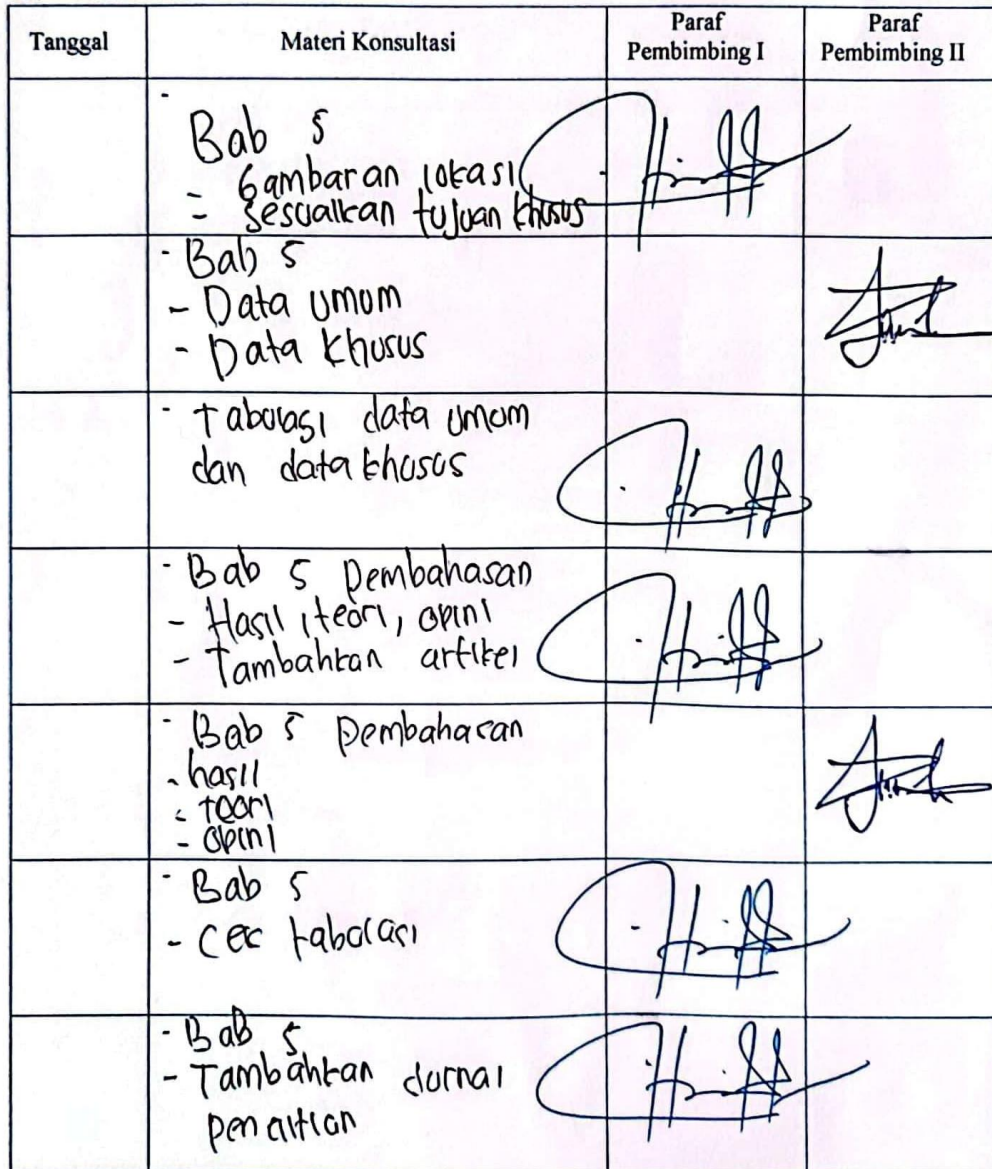 Tanggal
Materi Konsultasi
Paraf
Pembimbing I
Paraf
Pembimbing II
Bab 5
- Gambaran lokasi
- Sesuaikan tujuan khusus
- Bab 5
- Data umum
- Data khusus
- Tabulasi data umum
dan data khusus
- Bab 5 Pembahasan
- Hasil, teori, opini
- Tambahkan artikel
- Bab 5 Pembahasan
- hasil
- teori
- opini
- Bab 5
- cek tabulasi
- Bab 5
- Tambahkan jurnal
penelitian